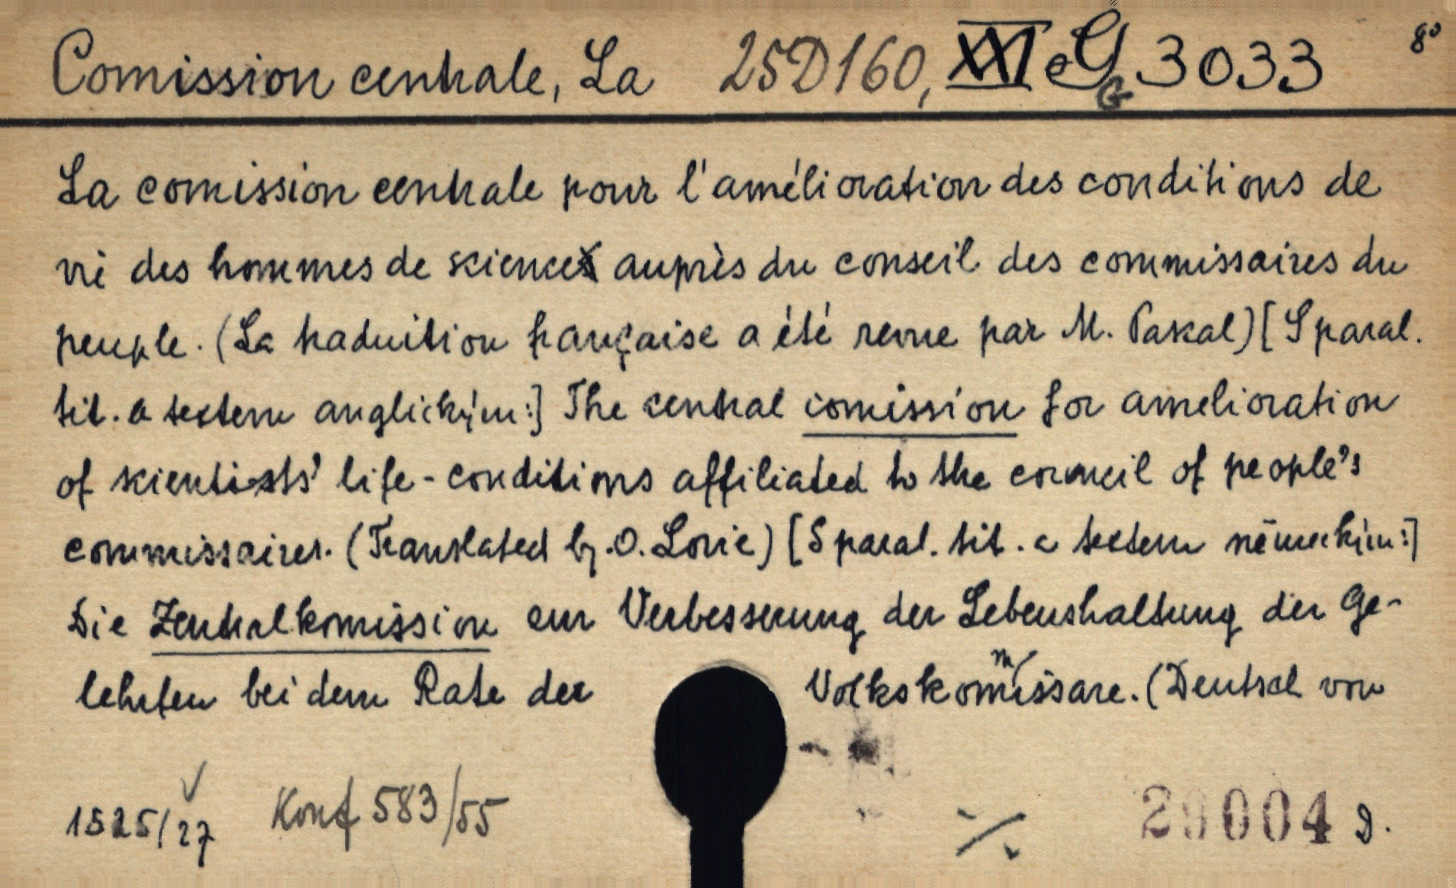 Comission centrale, La 25D160, XXI G 3033 8°
La comission centrale pour l'amélioration des conditions de
vie des hommes de science auprès du conseil des commissaires du
peuple. (La traduction française a été revue par M. Paskal) [S paral.
tit. a textem anglickým:] The central comission for amelioration
of scientists' life-conditions affiliated to the council of people's
commissaires. (Translated by O. Lorie) [S paral. tit. a textem německým:]
Die Zentralkomission zur Verbesserung der Lebenshaltung der Ge-
lehrten bei dem Rate der Volkskommissare. (Deutsch von
1525/27 Konf 583/55 ./. 29004 D.